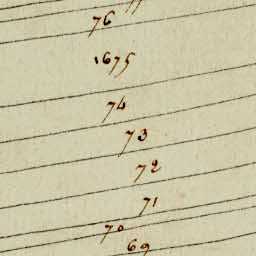 76
1675
74
73
72
71
70
69